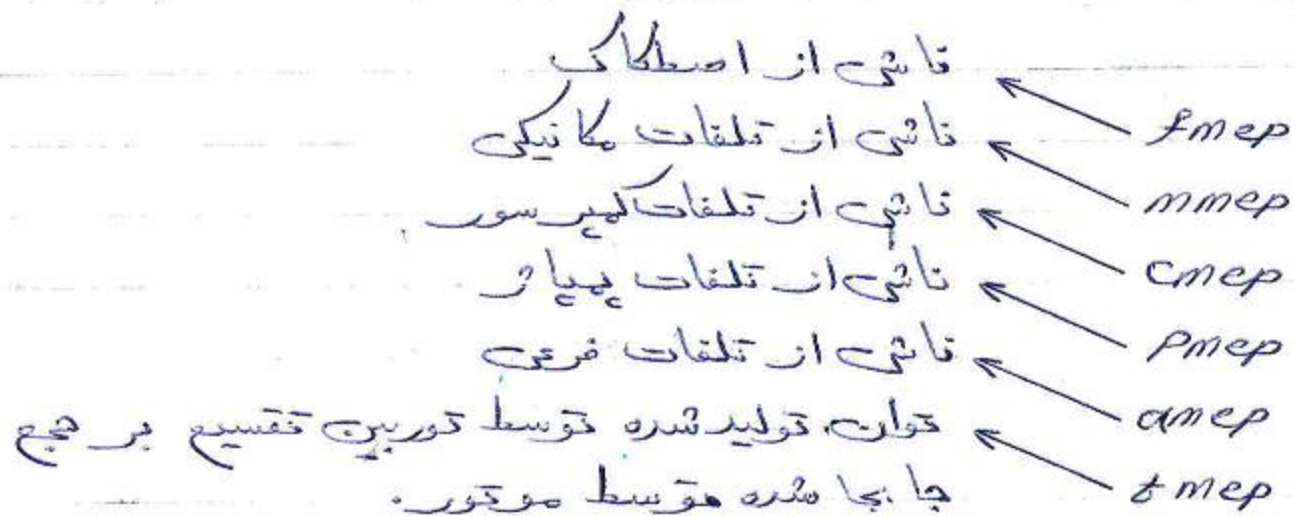 fmep ناشی از اصطکاک
mmep ناشی از تلفات مکانیکی
cmep ناشی از تلفات کمپرسور
pmep ناشی از تلفات پمپاژ
amep ناشی از تلفات فرعی
tmep توان تولید شده توسط توربین تقسیم بر حجم
جا بجا شده توسط موتور.